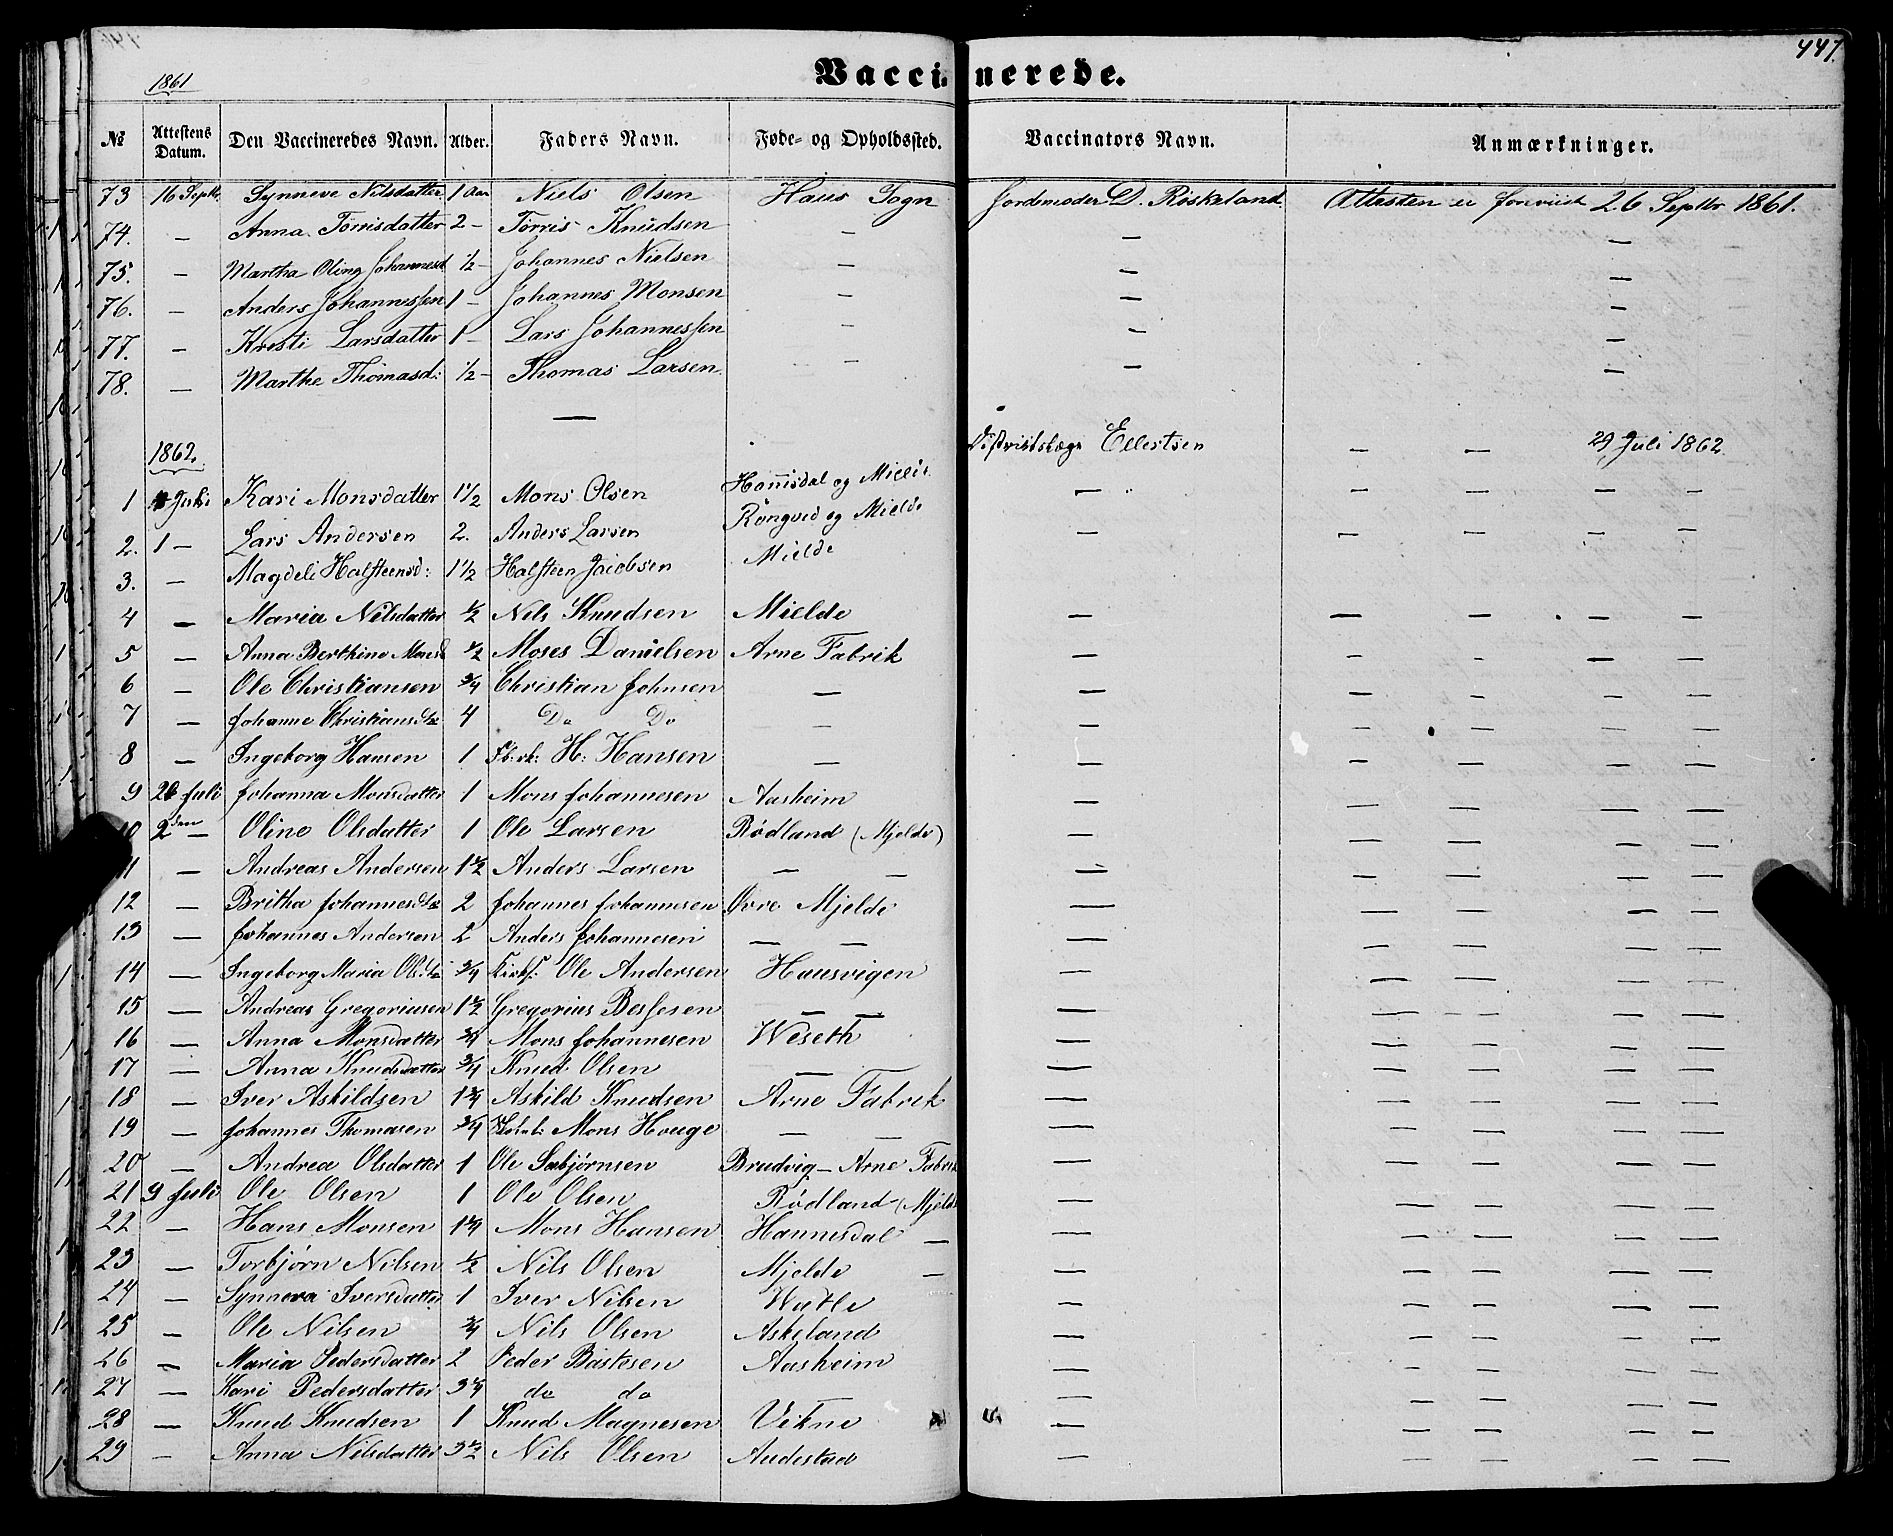 447.
1861
Vaccinerede.
№ Attestens Datum. Den Vaccineredes Navn. Alder. Faders Navn. Føde- og Opholdssted. Vaccinators Navn. Anmærkninger.
73 16 Septb. Synneve Nilsdatter 1 Aar Niels Olsen Haus Sogn Jordemoder D. Røskeland. Attesten er foreviist 26 Septbr 1861.
74. — Anna Tørrisdatter 2 — Tørris Knudsen — — —
75. — Martha Oling Johannesd ½ — Johannes Nielsen — — —
76. — Anders Johannessen 1 — Johannes Monsen — — —
77. — Kristi Larsdatter 1 — Lars Johannessen — — —
78. — Marthe Thomasd: ½ — Thomas Larsen. — — —
—
1862. Distriktslæge Ellertsen — — 29 Juli 1862.
1 Juli Kari Monsdatter 1½ Mons Olsen Hannisdal og Mielde — — — — —
2. 1 — Lars Andersen 2. Anders Larsen Röngved og Mielde — — — — —
3. — Magdeli Halsteensd: 1½ Halsteen Jacobsen Mielde
4 — Maria Nilsdatter ½ Nils Knudsen Mielde — — — — —
5 — Anna Berthine Mosesd ½ Moses Danielsen Arne Fabrik — — — — —
6 — Ole Christiansen ¾ Christian Johnsen — — — — — —
7 — Johanne Christiansdtr 4 Do Do — — — — — —
8 — Ingeborg Hansen 1 H. Hansen — — — — — —
9 26 Juli Johanna Monsdatter 1 Mons Johannesen Aasheim — — — — —
10 2den — Oline Olsdatter 1 Ole Larsen Rødland (Mjelde) — — — — —
11 — Andreas Andersen 1½ Anders Larsen — — — — — — —
12 — Britha Johannesdtr 2 Johannes Johannesen Øvre Mjelde — — — — —
13 — Johannes Andersen 2 Anders Johannesen — — — — — — —
14 — Ingeborg Maria Olsdtr ¾ Ole Andersen Hausvigen — — — — —
15 — Andreas Gregoriusen 1½ Gregorius Bessesen — — — — — — —
16 — Anna Monsdatter ¾ Mons Johannesen Weseth — — — — —
17 — Anna Knudsdatter ¾ Knud Olsen — — — — — —
18 — Iver Askildsen 1¾ Askild Knudsen Arne Fabrik — — — — —
19 — Johannes Thomasen ¾ Mons Houge — — — — — — —
20 — Andrea Olsdatter 1 Ole Sebjørnsen Brudvig — Arne Fabrik — — — — —
21 9 Juli Ole Olsen 1 Ole Olsen Rødland (Mjelde — — — — —
22 — Hans Monsen 1¼ Mons Hansen Hannisdal — — — — — —
23 — Torbjørn Nilsen ½ Nils Olsen Mjelde — — — — — —
24 — Synneva Iversdatter 1 Iver Nilsen Watle — — — — —
25 — Ole Nilsen ¾ Nils Olsen Askeland — — — — —
26 — Maria Pedersdatter 2 Peder Aasheim — — — — —
27 — Kari Pedersdatter 3¾ do do — — — — — —
28 — Knud Knudsen 1 Knud Magnesen Vikne — — — — —
29 — Anna Nilsdatter 3½ Nils Olsen Audestad — — — — —